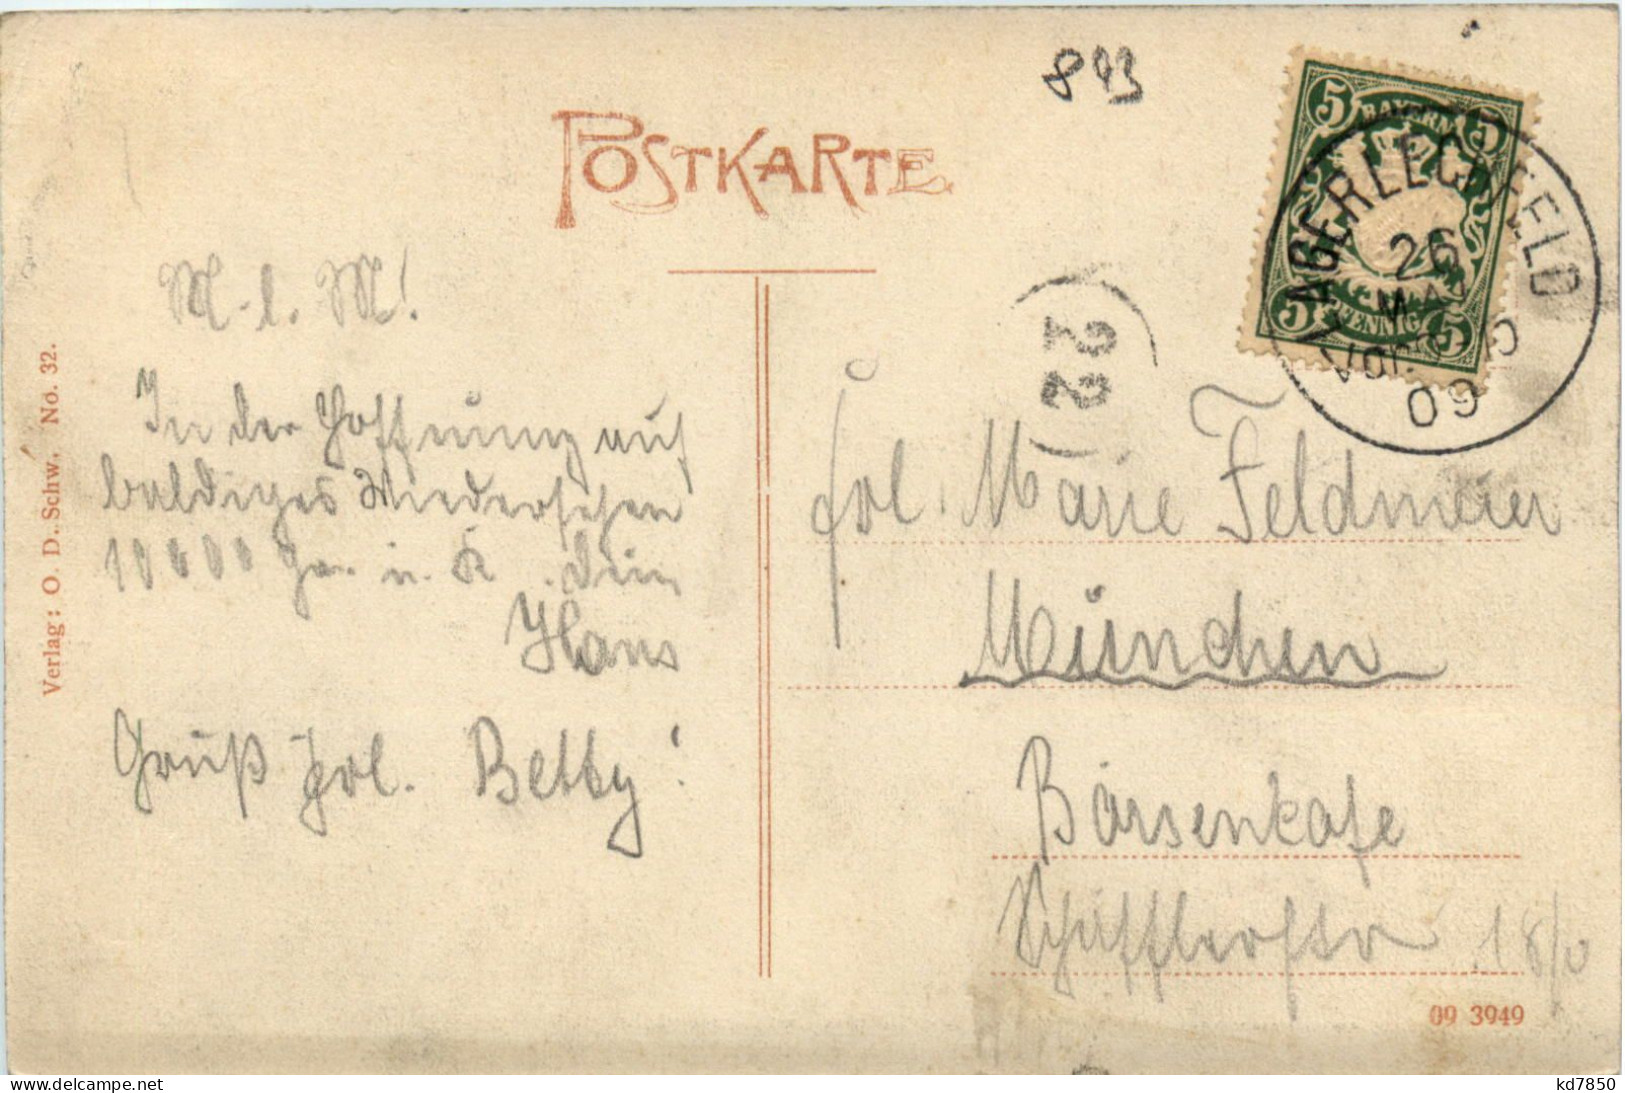 893
POSTKARTE
5 BAYERN 5
5 PFENNIG 5
LAGERLECHFELD
26
MAI
Vorm.
09
22
M. l. M!
In der Hoffnung auf
baldiges Wiedersehen
10000 Gr. u. K. dein
Hans
Gruß Frl. Betty!
Frl. Marie Feldmeier
München
Börsenkafe
Schäfflerstr 18/0
Verlag: O. D. Schw. No. 32.
09 3949
kd7850
www.delcampe.net